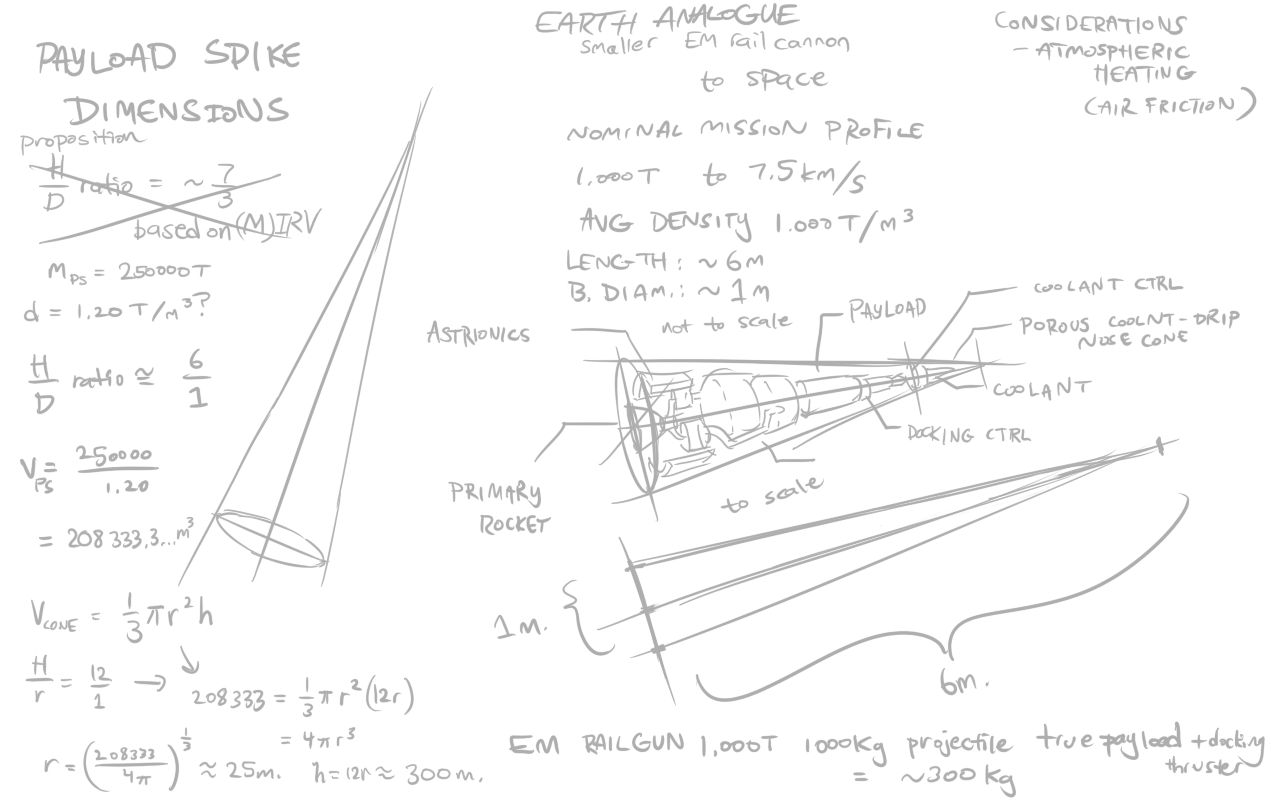 PAYLOAD SPIKE
DIMENSIONS
proposition
H/D ratio = ~ 7/3
based on (M)IRV
M_PS = 250000T
d = 1.20 T/m³?
H/D ratio ≅ 6/1
V_PS = 250000/1.20
= 208 333,3...m³
V_CONE = 1/3 πr²h
H/r = 12/1 → 208333 = 1/3 π r² (12r)
= 4πr³
r = (208333/4π)^1/3 ≈ 25m. h=12r ≈ 300m.
EARTH ANALOGUE
smaller EM rail cannon
to space
NOMINAL MISSION PROFILE
1,000T to 7.5km/s
AVG DENSITY 1.000T/m³
LENGTH: ~6m
B. DIAM.: ~1m
not to scale
ASTRIONICS
PAYLOAD
COOLANT CTRL
POROUS COOLNT-DRIP
NOSE CONE
COOLANT
DOCKING CTRL
PRIMARY
ROCKET
to scale
1m.
6m.
EM RAILGUN 1,000T 1000Kg projectile true payload + docking
thruster
= ~300kg
CONSIDERATIONS
- ATMOSPHERIC
HEATING
(AIR FRICTION)